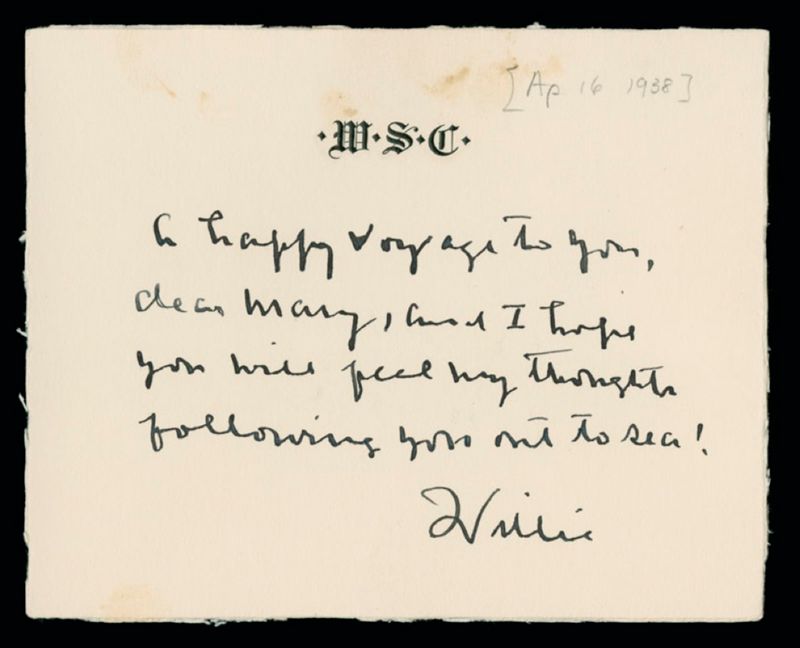 [Ap 16 1938]
·W·S·C·
A happy voyage to you,
dear Mary, and I hope
you will feel my thoughts
following you out to sea!
Willie